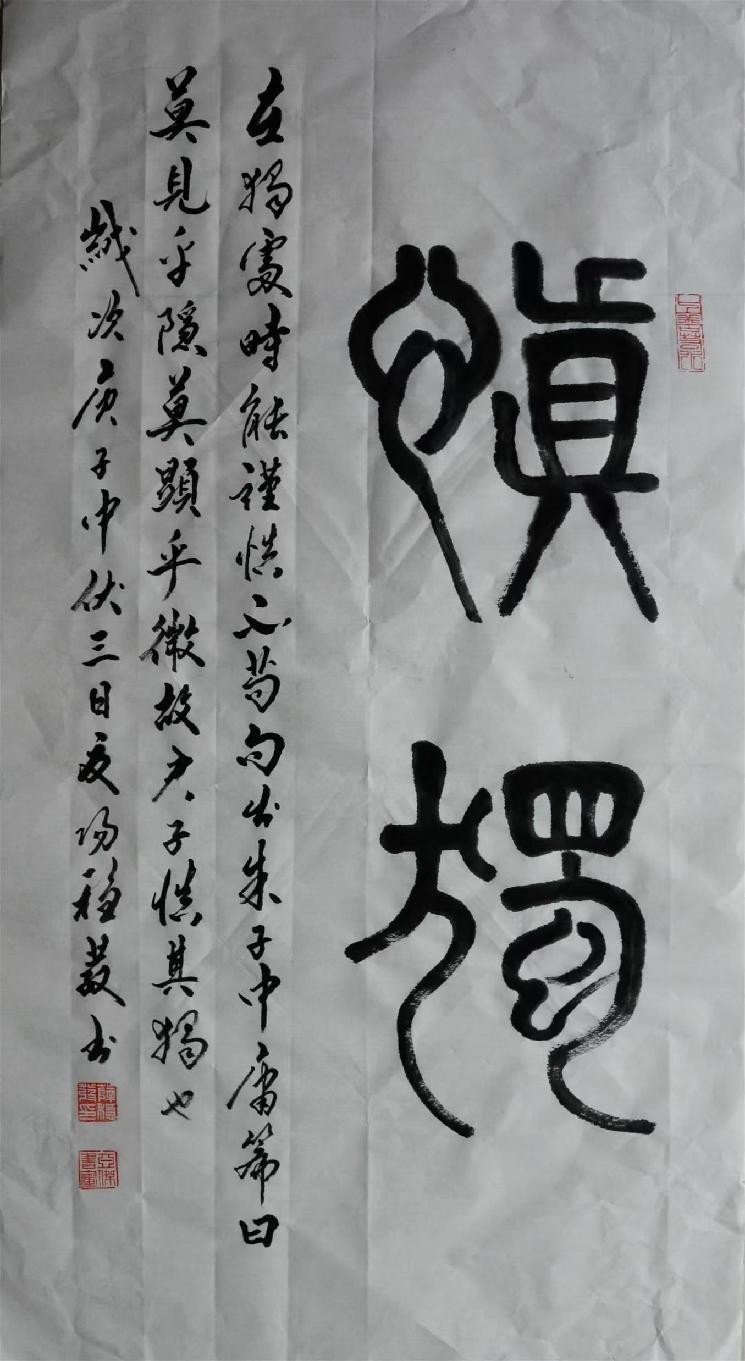 慎獨
在獨處時能謹慎不苟句出朱子中庸篇曰
莫見乎隱莫顯乎微故君子慎其獨也
歲次庚子中伏三日夜陽穆發书